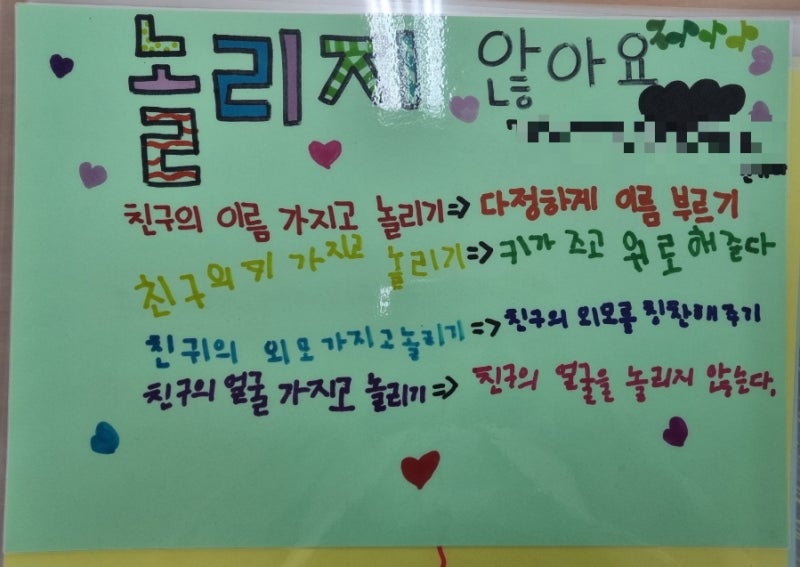 놀리지 않아요
친구의 이름 가지고 놀리기=> 다정하게 이름 부르기
친구의 키 가지고 놀리기=> 키가 크고 위로해준다
친귀의 외모 가지고 놀리기=> 친구의 외모를 칭찬해주기
친구의 얼굴 가지고 놀리기=> 친구의 얼굴을 놀리지 않는다.